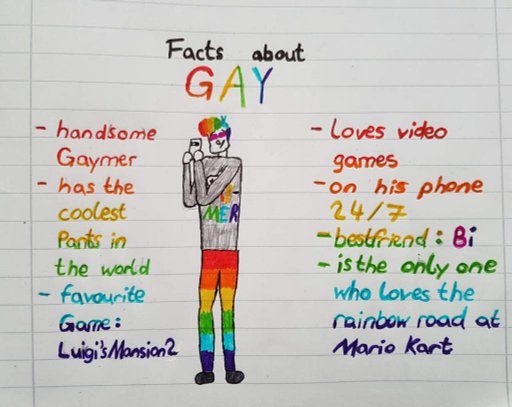 Facts about
GAY
- handsome
Gaymer
- has the
coolest
Pants in
the world
- favourite
Game:
Luigi's Mansion 2
MER
- Loves video
games
- on his phone
24/7
- bestfriend: Bi
- is the only one
who loves the
rainbow road at
Mario Kart